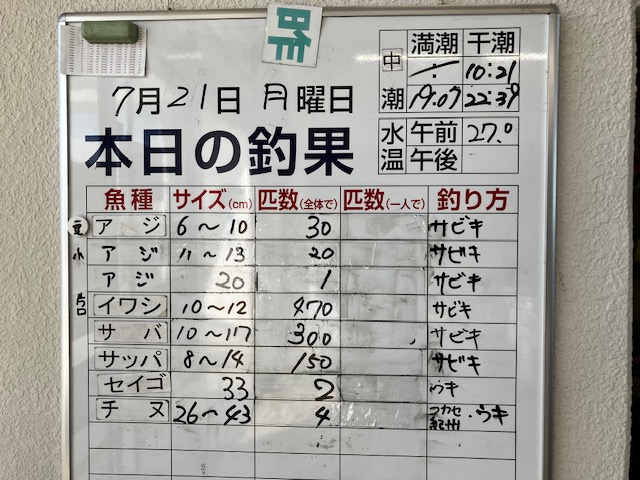 昨
満潮 干潮
中潮 ー:ー 10:21
19:07 22:39
7月21日 月曜日
水温 午前 27.0
午後
本日の釣果
魚種 サイズ(cm) 匹数(全体で) 匹数(一人で) 釣り方
豆 アジ 6〜10 30 サビキ
小 アジ 11〜13 20 サビキ
アジ 20 1 サビキ
イワシ 10〜12 470 サビキ
サバ 10〜17 300 サビキ
サッパ 8〜14 150 サビキ
セイゴ 33 2 ウキ
チヌ 26〜43 4 フカセ 紀州・ウキ